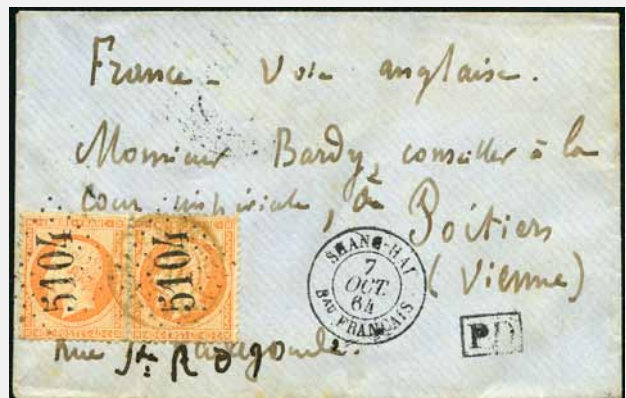 France - Voie anglaise.
Monsieur Bardy, conseiller à la
cour impériale, de
Poitiers
(Vienne)
5104
5104
SHANG-HAI
7
OCT.
64
Bau FRANCAIS
P.D.
rue Ste Radegonde.